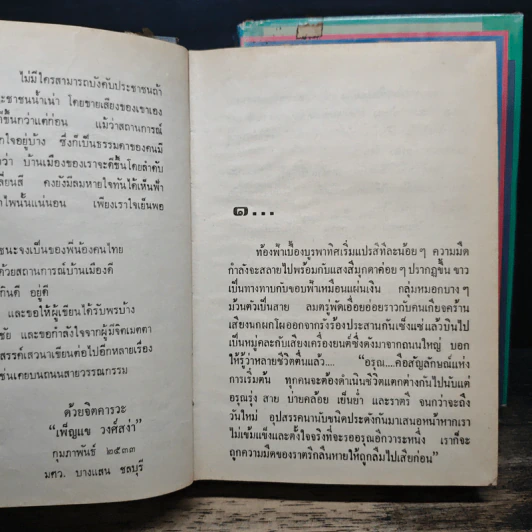 ไม่มีใครสามารถบังคับประชาชนถ้า
ะชาชนน้ำเน่า โดยขายเสียงของเขาเอง
ดีขึ้นกว่าแต่ก่อน แม้ว่าสถานการณ์
กใจอยู่บ้าง ซึ่งก็เป็นธรรมดาของคนมี
ว่า บ้านเมืองของเราจะดีขึ้นโดยลำดับ
ลี่ยนสี คงยังมีลมหายใจทันได้เห็นฟ้า
ำไพนั้นแน่นอน เพียงเราใจเย็นพอ
ชนะจงเป็นของพี่น้องคนไทย
ด้วยสถานการณ์บ้านเมืองดี
กินดี อยู่ดี
และขอให้ผู้เขียนได้รับพรบ้าง
ชัย และขอกำลังใจจากผู้มีจิตเมตตา
สรรค์เสวนาเขียนต่อไปอีกหลายเรื่อง
ช่นเคยบนถนนสายวรรณกรรม
ด้วยจิตคารวะ
“เพ็ญแข วงศ์สง่า”
กุมภาพันธ์ ๒๕๓๓
มศว. บางแสน ชลบุรี
๑...
ท้องฟ้าเบื้องบูรพาทิศเริ่มแปรสีทีละน้อย ๆ ความมืด
กำลังจะสลายไปพร้อมกับแสงสีมุกดาค่อย ๆ ปรากฏขึ้น ขาว
เป็นทางทาบกับขอบฟ้าเหมือนแผ่นเงิน กลุ่มหมอกบาง ๆ
ม้วนตัวเป็นสาย ลมตรู่พัดเอื่อยอ่อยราวกับคนเกียจคร้าน
เสียงนกผกโผออกจากรังร้องประสานกันเซ็งแซ่แล้วบินไป
เป็นหมู่คละกับเสียงเครื่องยนต์ซึ่งดังมาจากถนนใหญ่ บอก
ให้รู้ว่าหลายชีวิตตื่นแล้ว.... “อรุณ....คือสัญลักษณ์แห่ง
การเริ่มต้น ทุกคนจะต้องดำเนินชีวิตแตกต่างกันไปนับแต่
อรุณรุ่ง สาย บ่ายคล้อย เย็นย่ำ และราตรี จนกว่าจะถึง
วันใหม่ อุปสรรคนานับชนิดประดังกันมาเสนอหน้าหากเรา
ไม่เข้มแข็งและตั้งใจจริงที่จะรออรุณอีกวาระหนึ่ง เราก็จะ
ถูกความมืดของราตรีกลืนหายให้ถูกลืมไปเสียก่อน”